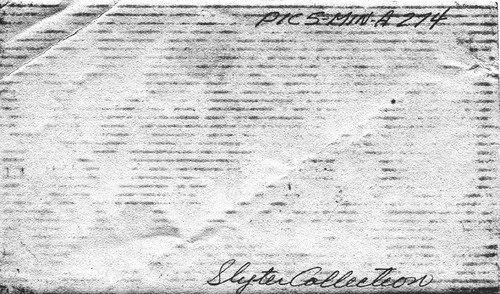 PIC 5-MIN-A 274
Slyter Collection